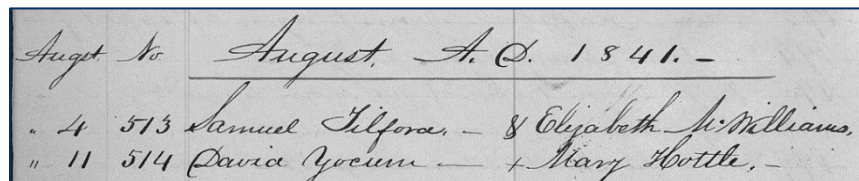 Augst. No. August, A. D. 1841. -
" 4 513 Samuel Tilford. - & Elizabeth McWilliams,
" 11 514 David Yocum - + Mary Hottle. -